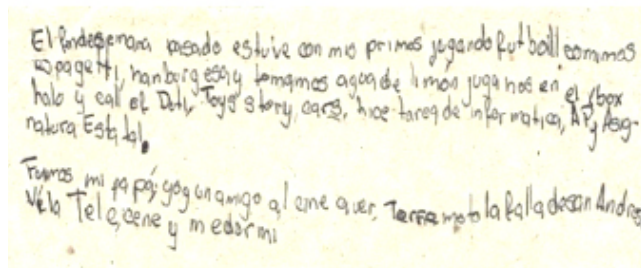 El findesemana pasado estuve con mis primos jugando futboll comimos
espagetti, hamburgesa y tomamos agua de limon jugamos en el xbox
halo y call of Duti, Toys story, cars, hice tarea de informatica, AP y Asig-
natura Estatal.
Fuimos mi papá, yo y un amigo al cine a ver, Terremoto la falla de san Andres
Vi la Tele, cene y me dormi